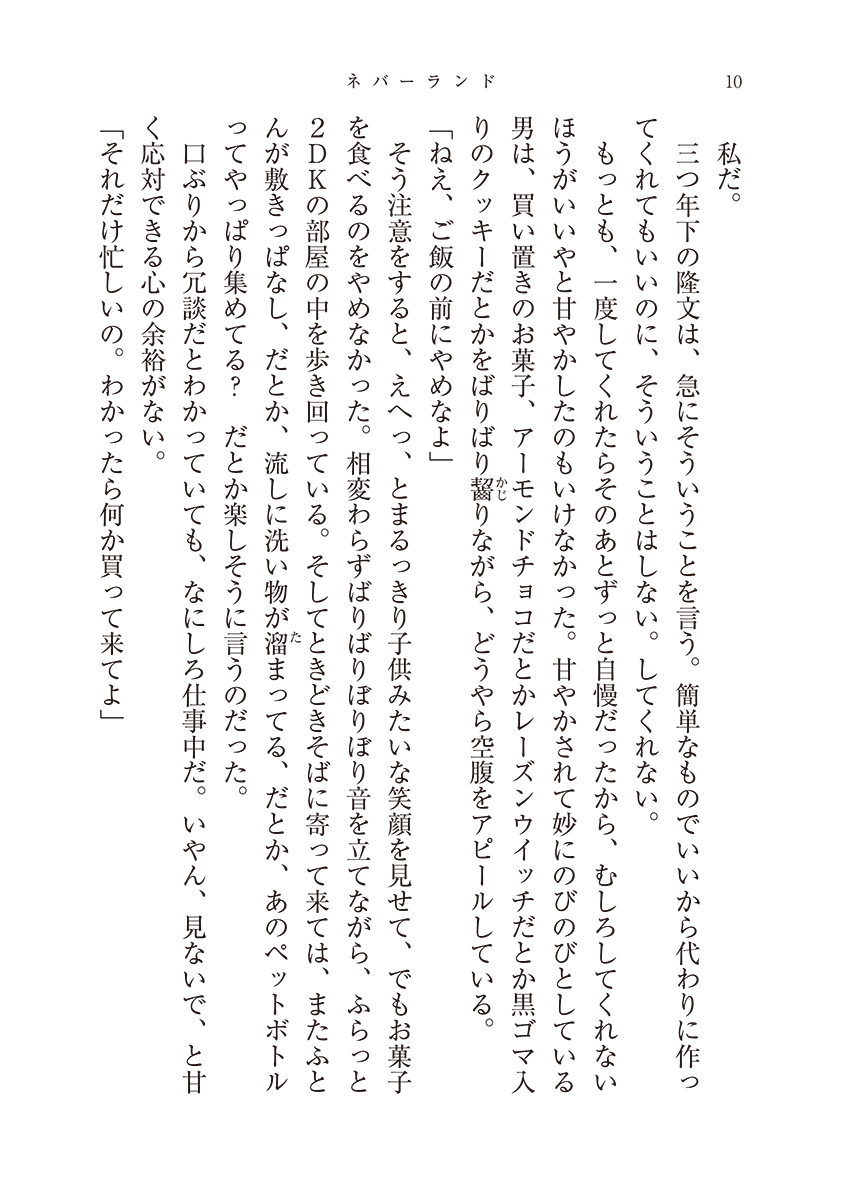 ネバーランド
10
私だ。
三つ年下の隆文は、急にそういうことを言う。簡単なものでいいから代わりに作っ
てくれてもいいのに、そういうことはしない。してくれない。
もっとも、一度してくれたらそのあとずっと自慢だったから、むしろしてくれない
ほうがいいやと甘やかしたのもいけなかった。甘やかされて妙にのびのびとしている
男は、買い置きのお菓子、アーモンドチョコだとかレーズンウイッチだとか黒ゴマ入
りのクッキーだとかをばりばり齧りながら、どうやら空腹をアピールしている。
かじ
「ねえ、ご飯の前にやめなよ」
そう注意をすると、えへっ、とまるっきり子供みたいな笑顔を見せて、でもお菓子
を食べるのをやめなかった。相変わらずばりばりぼりぼり音を立てながら、ふらっと
２ＤＫの部屋の中を歩き回っている。そしてときどきそばに寄って来ては、またふと
んが敷きっぱなし、だとか、流しに洗い物が溜まってる、だとか、あのペットボトル
た
ってやっぱり集めてる？　だとか楽しそうに言うのだった。
口ぶりから冗談だとわかっていても、なにしろ仕事中だ。いやん、見ないで、と甘
く応対できる心の余裕がない。
「それだけ忙しいの。わかったら何か買って来てよ」